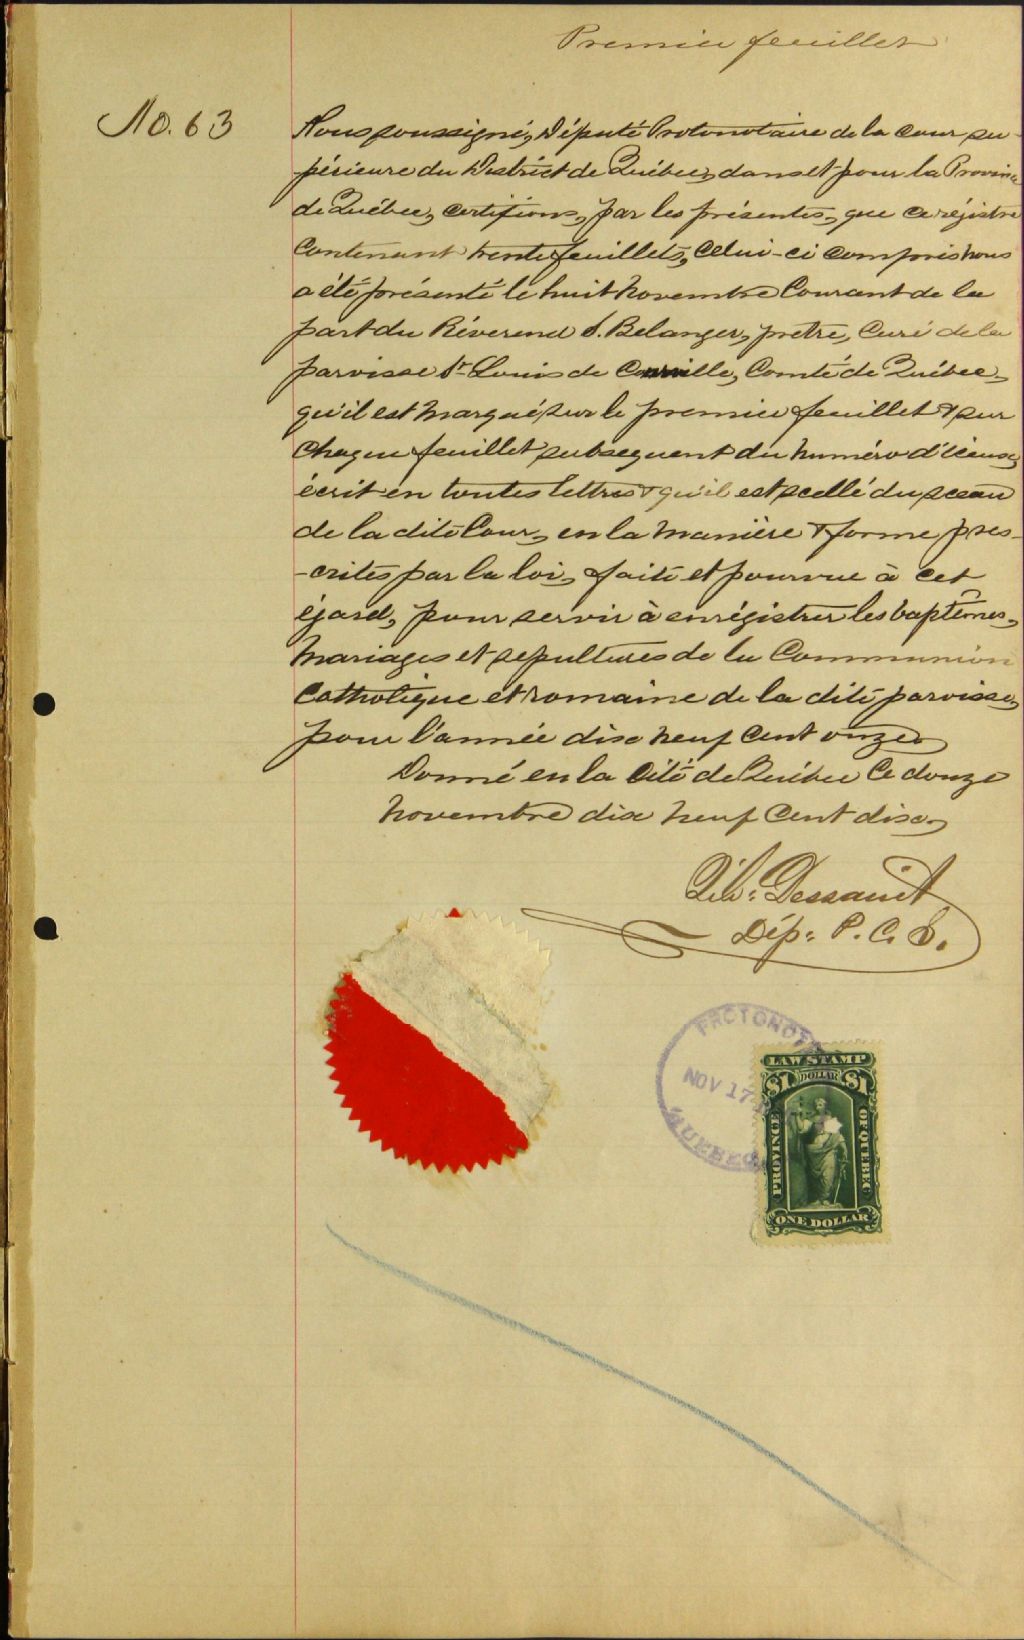 Premier feuillet
No. 63
Nous soussigné, Député Protonotaire de la cour su-
périeure du District de Québec, dans et pour la Province
de Québec, certifions, par les présentes, que ce régistre
Contenant trente feuillets, celui-ci compris nous
a été présenté le huit Novembre Courant de la
part du Réverend S. Belanger, prêtre, Curé de la
paroisse St Louis de Courville, Comté de Québec,
qu'il est marqué sur le premier feuillet & sur
chaque feuillet subsequent du numéro d'iceux,
écrit en toutes lettres & qu'il est scellé du sceau
de la dite Cour, en la manière & forme pres-
-crites par la loi, faite et pourvue à cet
égard, pour servir à enrégistrer les baptêmes,
Mariages et sepultures de la Communion
Catholique et romaine de la dite paroisse,
pour l'année dix neuf cent onze
Donné en la Cité de Québec Ce douze
Novembre dix neuf cent dix
Dessault
Dép: P. C. S.
PROTONOT
NOV 17
QUEBEC
LAW STAMP
$1 DOLLAR $1
PROVINCE
OF QUEBEC
ONE DOLLAR